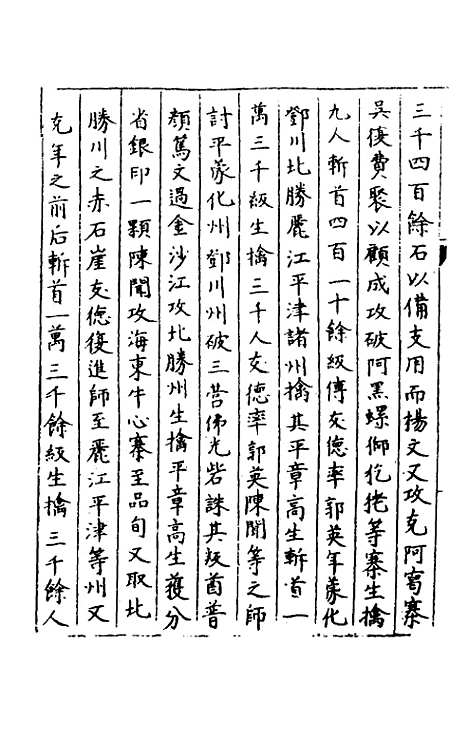 三千四百餘石以備支用而揚文又攻克阿甯寨
吳復費聚以顧成攻破阿黑螺仰犵狫等寨生擒
九人斬首四百一十餘級傅友德率郭英年蒙化
鄧川北勝麗江平津諸州擒其平章高生斬首一
萬三千級生擒三千人友德率郭英陳聞等之師
討平蒙化州鄧川州破三营佛光砦誅其叛酋普
顏篤文過金沙江攻北勝州生擒平章高生獲分
省銀印一顆陳聞攻海東牛心寨至品甸又取北
勝川之赤石崖友德復進師至麗江平津等州又
克年之前后斬首一萬三千餘級生擒三千餘人